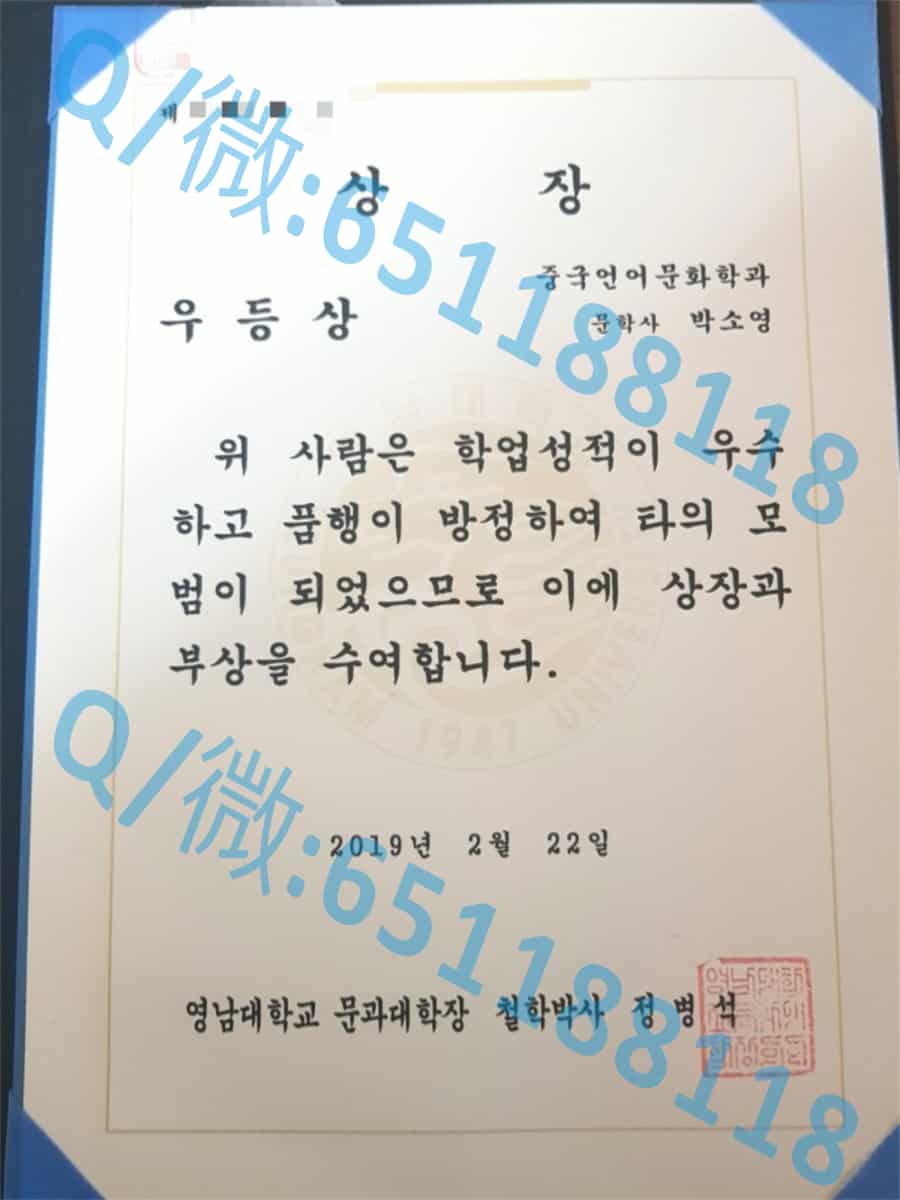 제
상 장
중국언어문화학과
우등상
문학사 박소영
위 사람은 학업성적이 우수
하고 품행이 방정하여 타의 모
범이 되었으므로 이에 상장과
부상을 수여합니다.
2019년 2월 22일
영남대학교 문과대학장 철학박사 정병석
Q/微:651188118
Q/微:651188118
1947 UNIVER